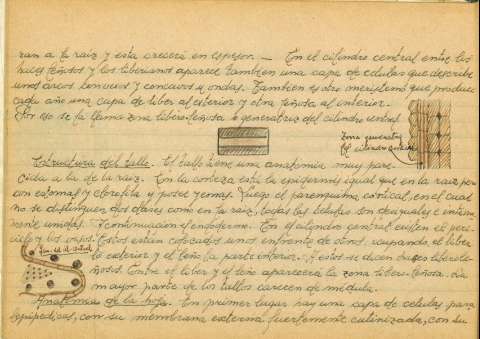 ran a la raiz y esta crecerá en espesor. — En el cilindro central entre los
haces leñosos y los liberianos aparece tambien una capa de celulas que describe
unos arcos convexos y concavos u ondas. Tambien es otro meristemo que produce
cada año una capa de liber al exterior y otra leñosa al interior.
Por eso se la llama zona libero-leñosa o generatriz del cilindro central.
Zona generatriz
del cilindro central
Estructura del tallo. El tallo tiene una anatomia muy pare-
cida a la de la raiz. En la corteza está la epidermis igual que en la raiz pero
con estomas y clorofila y posee yemas. Luego el parenquima cortical, en el cual
no se distinguen dos clases como en la raiz, todas las celulas son desiguales e intima-
mente unidas. A continuacion el endodermo. En el cilindro central existen el peri-
ciclo y los vasos. Estos estan colocados unos enfrente de otros, ocupando el liber
lo exterior y el leño la parte interior. A estos se dicen haces libero-le-
ñosos. Entre el liber y el leño aparecerá la zona libero-leñosa. La
mayor parte de los tallos carecen de médula.
Anatomia de la hoja. En primer lugar hay una capa de celulas para-
lepipedicas, con su membrana externa fuertemente cutinizada, con su